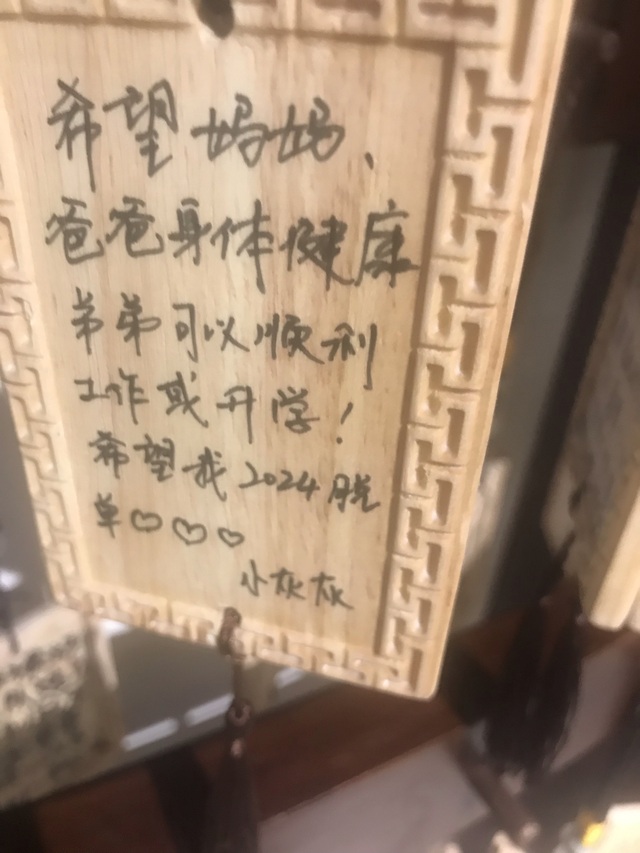 希望妈妈、
爸爸身体健康
弟弟可以顺利
工作或升学！
希望我2024脱
单♡♡♡
小灰灰